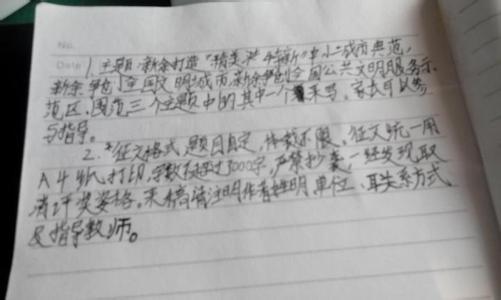 No.
Date 1.主题:新余打造"精美 特新"中小城市典范,
新余争创全国文明城市,新余争创全国公共文明服务示
范区,围绕三个主题中的其中一个来写,家长可以参
与指导。
2.*征文格式 题目自定,体裁不限,征文统一用
A4纸打印,字数不超过3000字,严禁抄袭一经发现取
消评奖资格。来稿请注明作者姓明单位、联系方式,
及指导教师。